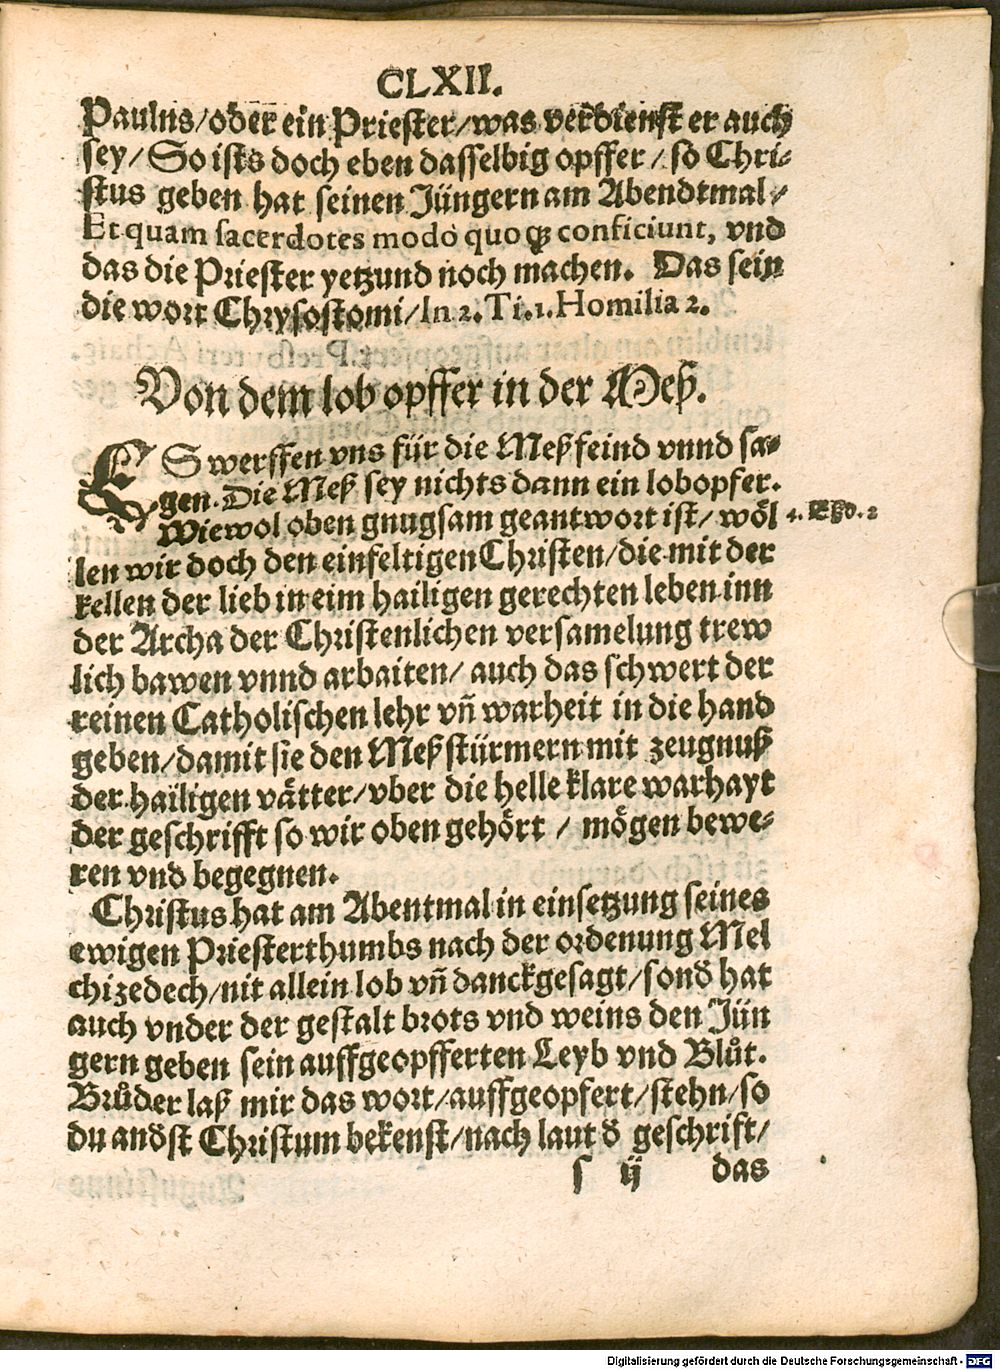 CLXII.
Paulns/oder ein Priester/was verdienst er auch
sey/So ists doch eben dasselbig opffer/so Chri-
stus geben hat seinen Jüngern am Abendtmal/
Et quam sacerdotes modo quoqꝫ conficiunt, vnd
das die Priester yetzund noch machen. Das sein
die wort Chrysostomi/In 2. Ti.1. Homilia 2.
Von dem lob opffer in der Meß.
ES werffen vns für die Meßfeind vnnd sa-
gen. Die Meß sey nichts dann ein lobopfer.
Wiewol oben gnugsam geantwort ist/wöl
len wir doch den einfeltigen Christen/die mit der
kellen der lieb in eim hailigen gerechten leben inn
der Archa der Christenlichen versamelung trew
lich bawen vnnd arbaiten/auch das schwert der
reinen Catholischen lehr vñ warheit in die hand
geben/damit sie den Meßstürmern mit zeugnuß
der hailigen vätter/vber die helle klare warhayt
der geschrifft so wir oben gehört/mögen bewe-
ren vnd begegnen.
Christus hat am Abentmal in einsetzung seines
ewigen Priesterthumbs nach der ordenung Mel
chizedech/nit allein lob vñ danckgesagt/sonð hat
auch vnder der gestalt brots vnd weins den Jün
gern geben sein auffgeopfferten Leyb vnd Blůt.
Brůder laß mir das wort/auffgeopfert/stehn/so
du andst Christum bekenst/nach laut ð geschrift/
s ij das
Digitalisierung gefördert durch die Deutsche Forschungsgemeinschaft - DFG